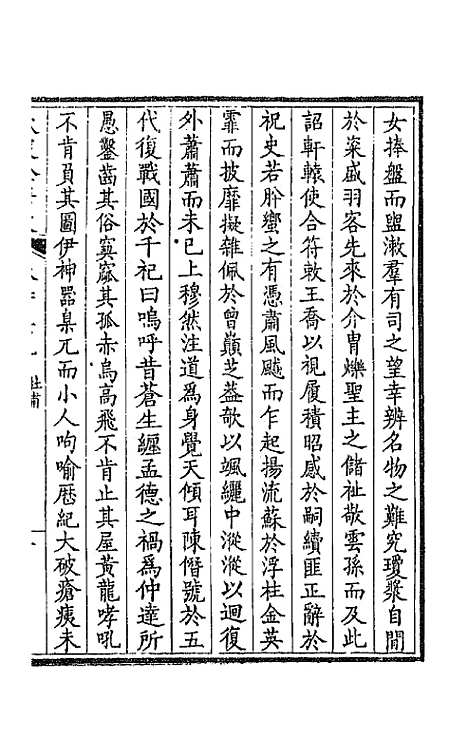 女捧盤而盥漱羣有司之望幸辨名物之難究瓊漿自閒
於粢盛羽客先來於介胄爍聖主之儲祉敬雲孫而及此
詔軒轅使合符敕王喬以視履積昭感於嗣續匪正辭於
祝史若肸蠁之有憑肅風飈而乍起揚流蘇於浮柱金英
霏而披靡擬雜佩於曾巔芝蓋欹以颯纚中漎漎以迴復
外蕭蕭而未已上穆然注道為身覺天傾耳陳僭號於五
代復戰國於千祀曰嗚呼昔蒼生纏孟德之禍為仲達所
愚鑿齒其俗窫窳其孤赤烏高飛不肯止其屋黃龍哮吼
不肯負其圖伊神器臬兀而小人呴喻厯紀大破瘡痍未
杜甫